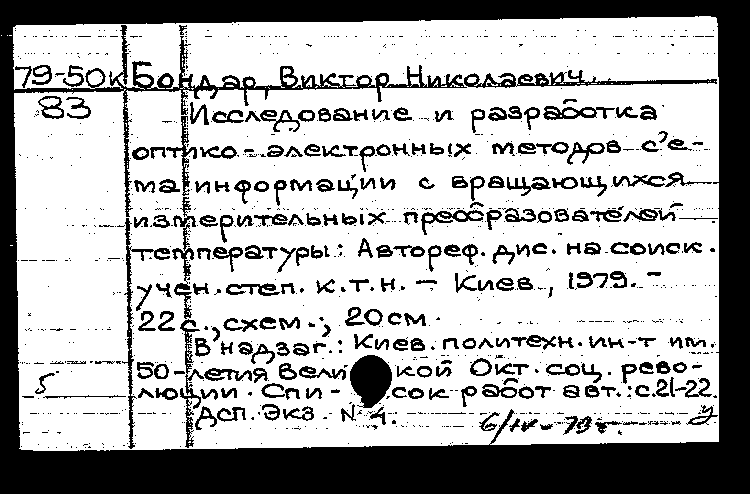 79-50к Бондар, Виктор Николаевич.
83 Исследование и разработка
оптико-электронных методов с'е-
ма информации с вращающихся
измерительных преобразователей
температуры: Автореф. дис. на соиск.
учен. степ. к.т.н. — Киев, 1979. —
22 с., схем.; 20 см.
В надзаг.: Киев. политехн. ин-т им.
50-летия Великой Окт. соц. рево-
5 люции. Спи- сок работ авт.: с.21-22.
ДСП. Экз. № 4. 6/IV-79г. у